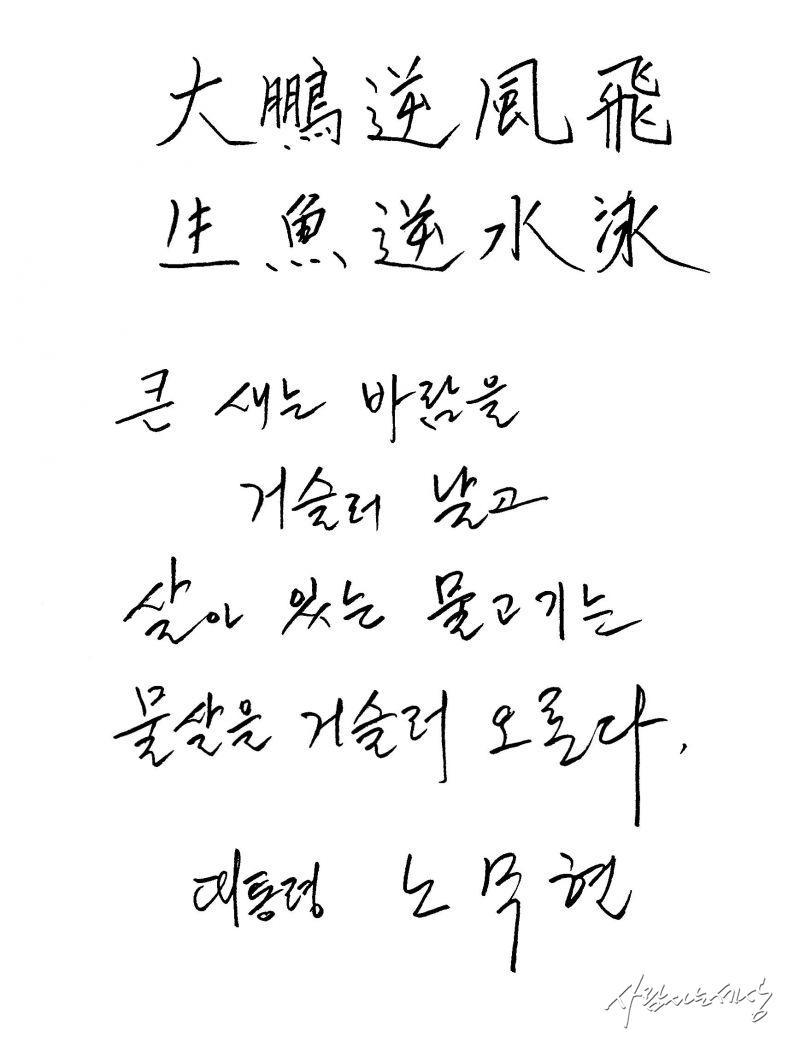 大鵬逆風飛
生魚逆水泳
큰 새는 바람을
거슬러 날고
살아 있는 물고기는
물살을 거슬러 오른다.
대통령 노무현
사람사는세상